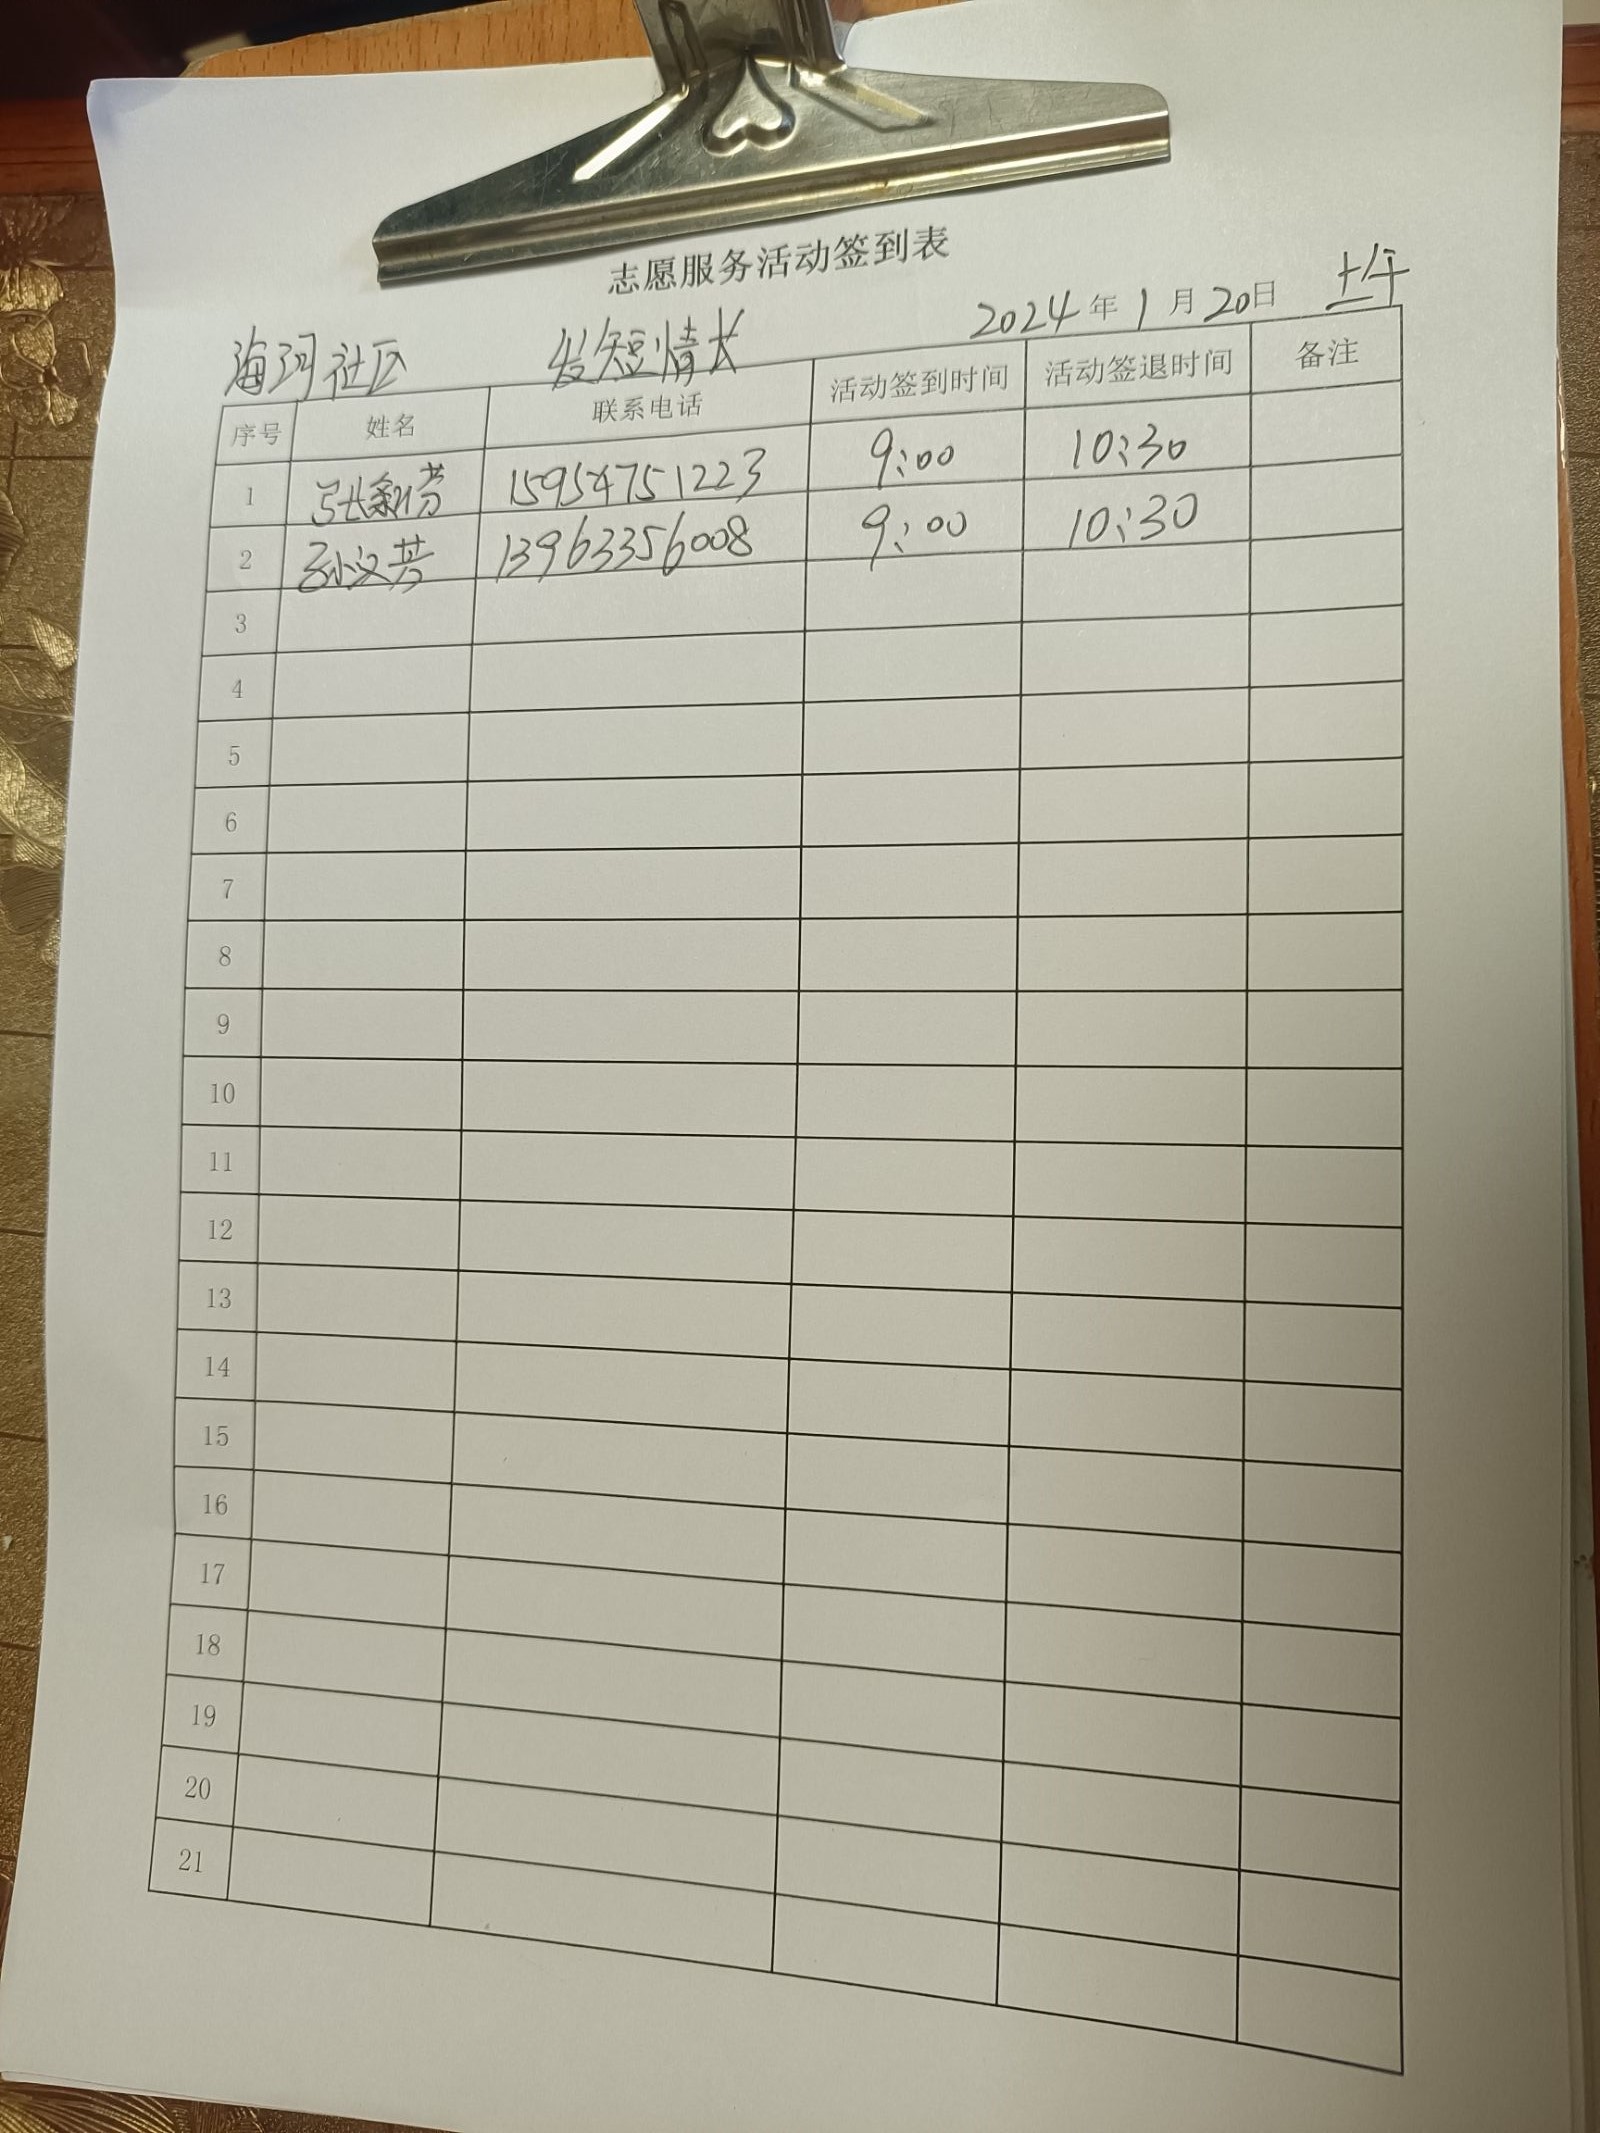 志愿服务活动签到表
2024年1月20日 上午
海河社区 发短情长
序号 姓名 联系电话 活动签到时间 活动签退时间 备注
1 张爱芳 15954751223 9:00 10:30
2 孙文芳 13963356008 9:00 10:30
3
4
5
6
7
8
9
10
11
12
13
14
15
16
17
18
19
20
21